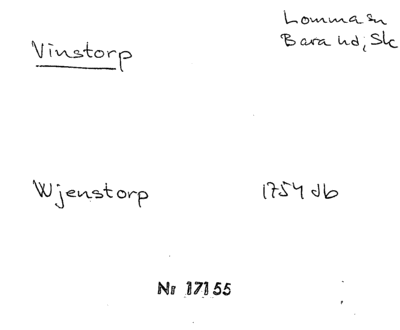 Lommasn
Vinstorp
Bara hd, Sk
Wjenstorp 1754 db
Nr 17155